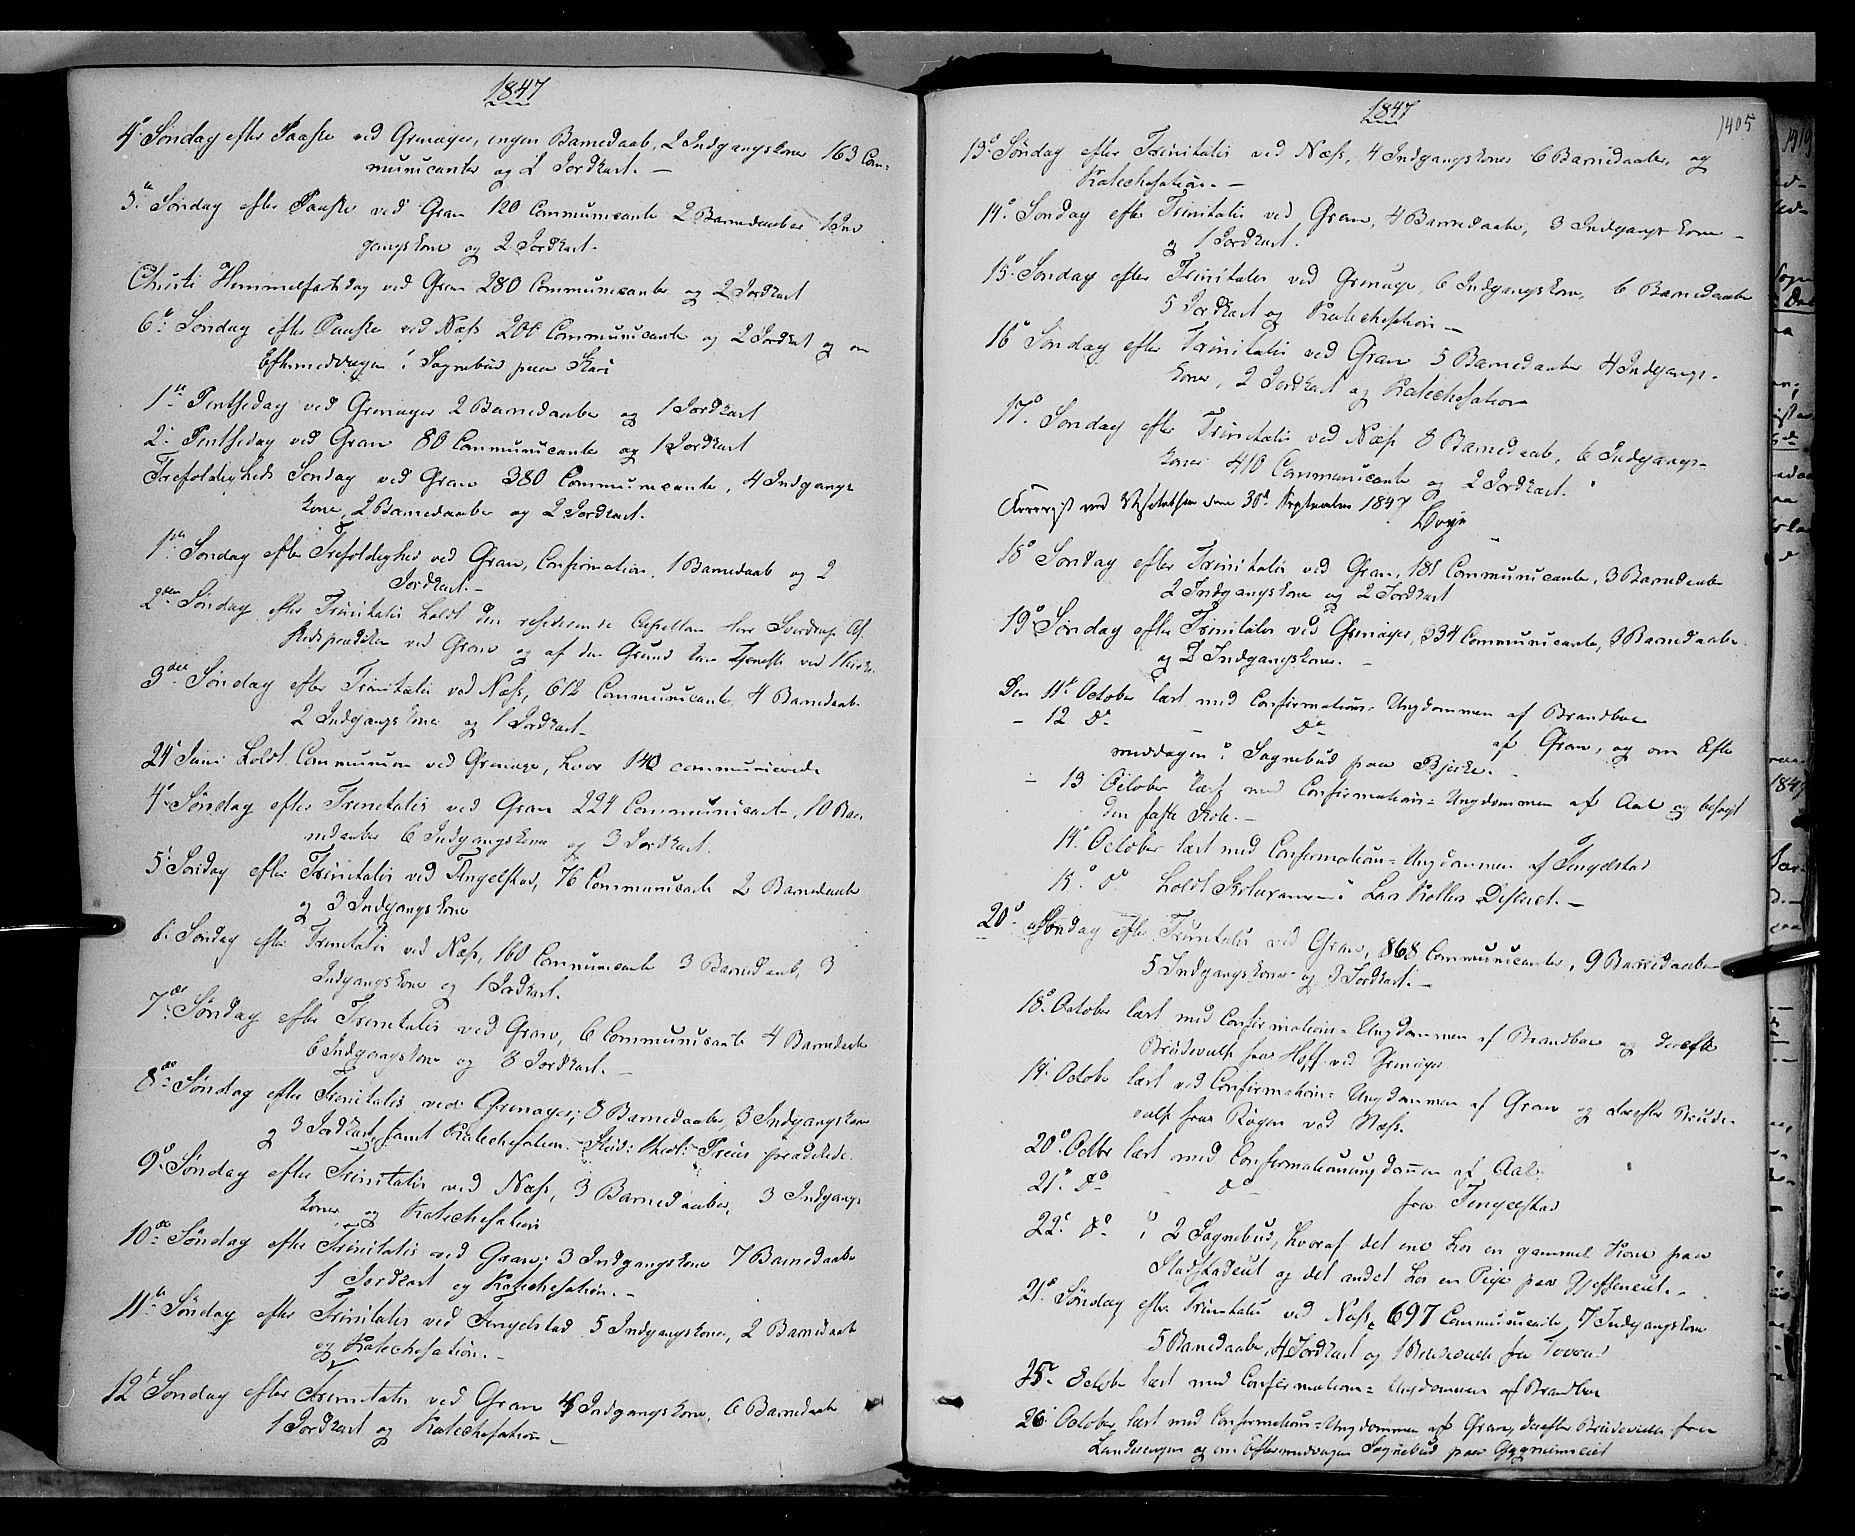 1847
4de Søndag efter Paaske ved Grinager, ingen Barnedaab, 2 Indgangskoner 163 Com-
municanter og 2 Jordkast. —
5te Søndag efter Paaske ved Gran 120 Communicanter 2 Barnedaaber 1 Ind
gangskone og 2 Jordkast.
Christi Himmelfartsdag ved Gran 280 Communicanter og 2 Jordkast
6te Søndag efter Paaske ved Næss 200 Communicanter og 2 Jordkast og om
Eftermiddagen i Sognebud paa
1ste Pentsedag ved Grinager 2 Barnedaaber og 1 Jordkast
2. Pentsedag ved Gran 80 Communicanter og 1 Jordkast
Trefoldigheds Søndag ved Gran 380 Communicanter, 4 Indgangs
kone, 2 Barnedaaber og 2 Jordkast.
1ste Søndag efter Trefoldighed ved Gran, Confirmation, 1 Barnedaab og 2
Jordkast. —
2den Søndag efter Trinitatis holdt den residerende Capellan Herr Sverdrup Af
skedsprædiken ved Gran og af den Grund
3die Søndag efter Trinitatis ved Næss, 612 Communicanter 4 Barnedaab
2 Indgangskone og 1 Jordkast —
24de Juni holdt Communion ved Grinager, hvor 140 communicerede
4de Søndag efter Trinitatis ved Gran 224 Communicanter, 10 Bar
nedaaber 6 Indgangskone og 3 Jordkast.
5te Søndag efter Trinitatis ved Tingelstad, 76 Communicanter 2 Barnedaabe
og 3 Indgangskone
6. Søndag efter Trinitatis ved Næss, 160 Communicanter 3 Barnedaab, 3
Indgangskone og 1 Jordkast.
7de Søndag efter Trinitatis ved Gran, 6 Communicanter 4 Barnedaab
6 Indgangskone og 8 Jordkast. —
8de Søndag efter Trinitatis ved Grinager, 8 Barnedaaber, 3 Indgangskone
og 3 Jordkast, samt Katechesation. Stud: theol: prædikede.
9de Søndag efter Trinitatis ved Næss, 3 Barnedaaber, 3 Indgangs
koner og Katechesation
10de Søndag efter Trinitatis ved Gran, 3 Indgangskone 7 Barnedaabe
1 Jordkast og Katechesation. —
11te Søndag efter Trinitatis ved Tingelstad 5 Indgangskoner, 2 Barnedaab
og Katechesation. —
12te Søndag efter Trinitatis ved Gran 4 Indgangskone, 6 Barnedaab
1 Jordkast og Katechesation —
1847
1405
13de Søndag efter Trinitatis ved Næss, 4 Indgangskoner 6 Barnedaaber, og
Katechesation. —
14de Søndag efter Trinitatis ved Gran, 4 Barnedaaber, 3 Indgangskone —
og 1 Jordkast.
15de Søndag efter Trinitatis ved Grinager, 6 Indgangskone, 6 Barnedaaber
5 Jordkast og Katechesation —
16de Søndag efter Trinitatis ved Gran 5 Barnedaaber 4 Indgangs-
koner, 2 Jordkast og Katechesation
17de Søndag efter Trinitatis ved Næss 8 Barnedaab, 6 Indgangs-
koner 410 Communicanter og 2 Jordkast.
ved Visitatsen den 30te September 1847
18de Søndag efter Trinitatis ved Gran, 181 Communicanter, 3 Barnedaaber
2 Indgangskone og 2 Jordkast
19de Søndag efter Trinitatis ved Grinager, 334 Communicanter, 3 Barnedaaber
og 2 Indgangskoner. —
Den 11te October læst med Confirmations-Ungdommen af Brandbo
— 12 do — do af Gran, og om Efter
middagen i Sognebud paa Bjerke. —
— 13 October læst med Confirmations-Ungdommen af Aal og besøgt
den faste Skole. —
14de October læst med Confirmations-Ungdommen af Tingelstad
15. do holdt Skolexamen i Lars Kolles District. —
20de Søndag efter Trinitatis ved Gran, 868 Communicanter, 9 Barnedaaber
5 Indgangskoner og 3 Jordkast. —
18de October læst med Confirmations-Ungdommen af Brandbo og derefter
Brudevielse fra Hoff ved Grinager
19. October læst ved Confirmations-Ungdommen af Gran og derefter Brude-
vielse fra Røgen ved Næss.
20de Octbr læst med Confirmationsungdommen af Aal
21de do — do fra Tingelstad
22de do i 2 Sognebud, hvoraf det ene hos en gammel Kone paa
og det andet hos en Pige paa
21de Søndag efter Trinitatis ved Næss 697 Communicanter, 7 Indgangskone
5 Barnedaaber, 4 Jordkast og 1 Brudevielse fra
25de October læst med Confirmations-Ungdommen af Brandbo
26de October læst med Confirmations-Ungdommen af Gran, derefter Brudevielse fra
og om Eftermiddagen Sognebud paa